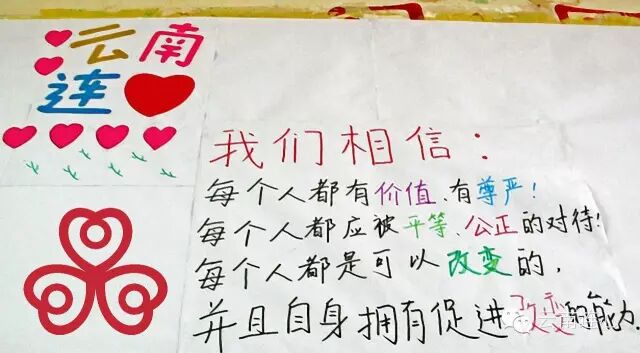 云南
连
我们相信:
每个人都有价值、有尊严!
每个人都应被平等、公正的对待!
每个人都是可以改变的,
并且自身拥有促进改变的能力.